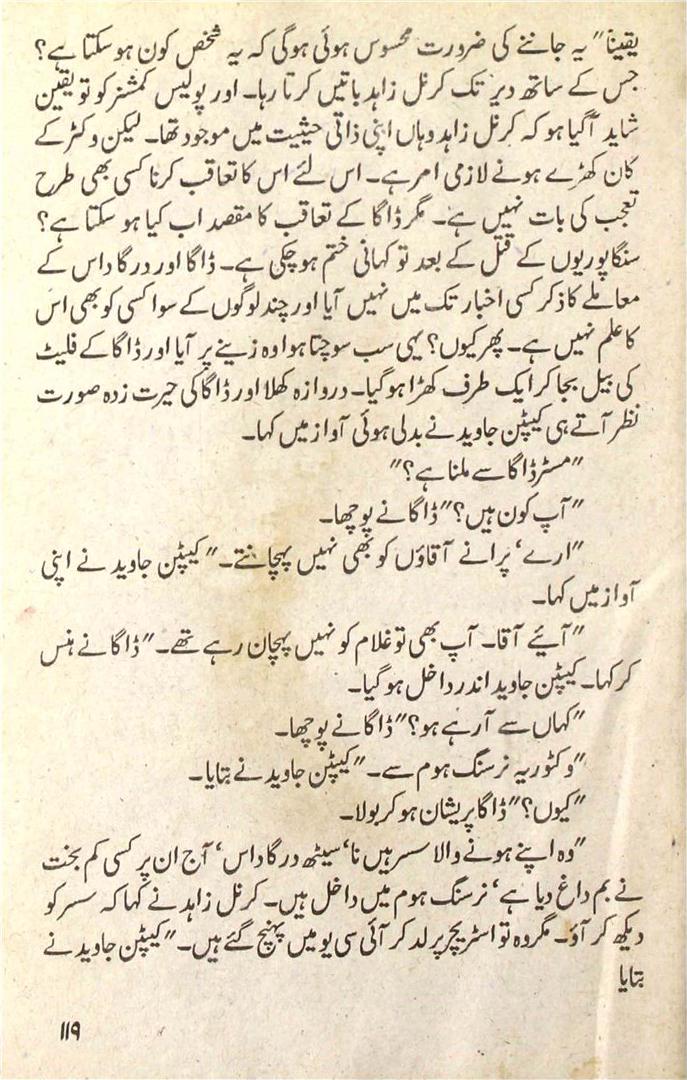 یقیناً" یہ جاننے کی ضرورت محسوس ہوئی ہوگی کہ یہ شخص کون ہو سکتا ہے؟
جس کے ساتھ دیر تک کرنل زاہد باتیں کرتا رہا۔ اور پولیس کمشنر کو تو یقین
شاید آگیا ہو کہ کرنل زاہد وہاں اپنی ذاتی حیثیت میں موجود تھا۔ لیکن وکٹر کے
کان کھڑے ہونے لازمی امر ہے۔ اس لئے اس کا تعاقب کرنا کسی بھی طرح
تعجب کی بات نہیں ہے۔ مگر ڈاگا کے تعاقب کا مقصد اب کیا ہو سکتا ہے؟
سنگاپوریوں کے قتل کے بعد تو کہانی ختم ہو چکی ہے۔ ڈاگا اور درگا داس کے
معاملے کا ذکر کسی اخبار تک میں نہیں آیا اور چند لوگوں کے سوا کسی کو بھی اس
کا علم نہیں ہے۔ پھر کیوں؟ یہی سب سوچتا ہوا وہ زینے پر آیا اور ڈاگا کے فلیٹ
کی بیل بجا کر ایک طرف کھڑا ہوگیا۔ دروازہ کھلا اور ڈاگا کی حیرت زدہ صورت
نظر آتے ہی کیپٹن جاوید نے بدلی ہوئی آواز میں کہا۔
"مسٹر ڈاگا سے ملنا ہے؟"
"آپ کون ہیں؟" ڈاگا نے پوچھا۔
"ارے‘ پرانے آقاؤں کو بھی نہیں پہچانتے۔" کیپٹن جاوید نے اپنی
آواز میں کہا۔
"آئیے آقا۔ آپ بھی تو غلام کو نہیں پہچان رہے تھے۔" ڈاگا نے ہنس
کر کہا۔ کیپٹن جاوید اندر داخل ہوگیا۔
"کہاں سے آرہے ہو؟" ڈاگا نے پوچھا۔
"وکٹوریہ نرسنگ ہوم سے۔" کیپٹن جاوید نے بتایا۔
"کیوں؟" ڈاگا پریشان ہو کر بولا۔
"وہ اپنے ہونے والا سسر ہیں نا‘ سیٹھ درگا داس‘ آج ان پر کسی کم بخت
نے بم داغ دیا ہے‘ نرسنگ ہوم میں داخل ہیں۔ کرنل زاہد نے کہا کہ سسر کو
دیکھ کر آؤ۔ مگر وہ تو اسٹریچر پر لد کر آئی سی یو میں پہنچ گئے ہیں۔" کیپٹن جاوید نے
بتایا
۱۱۹